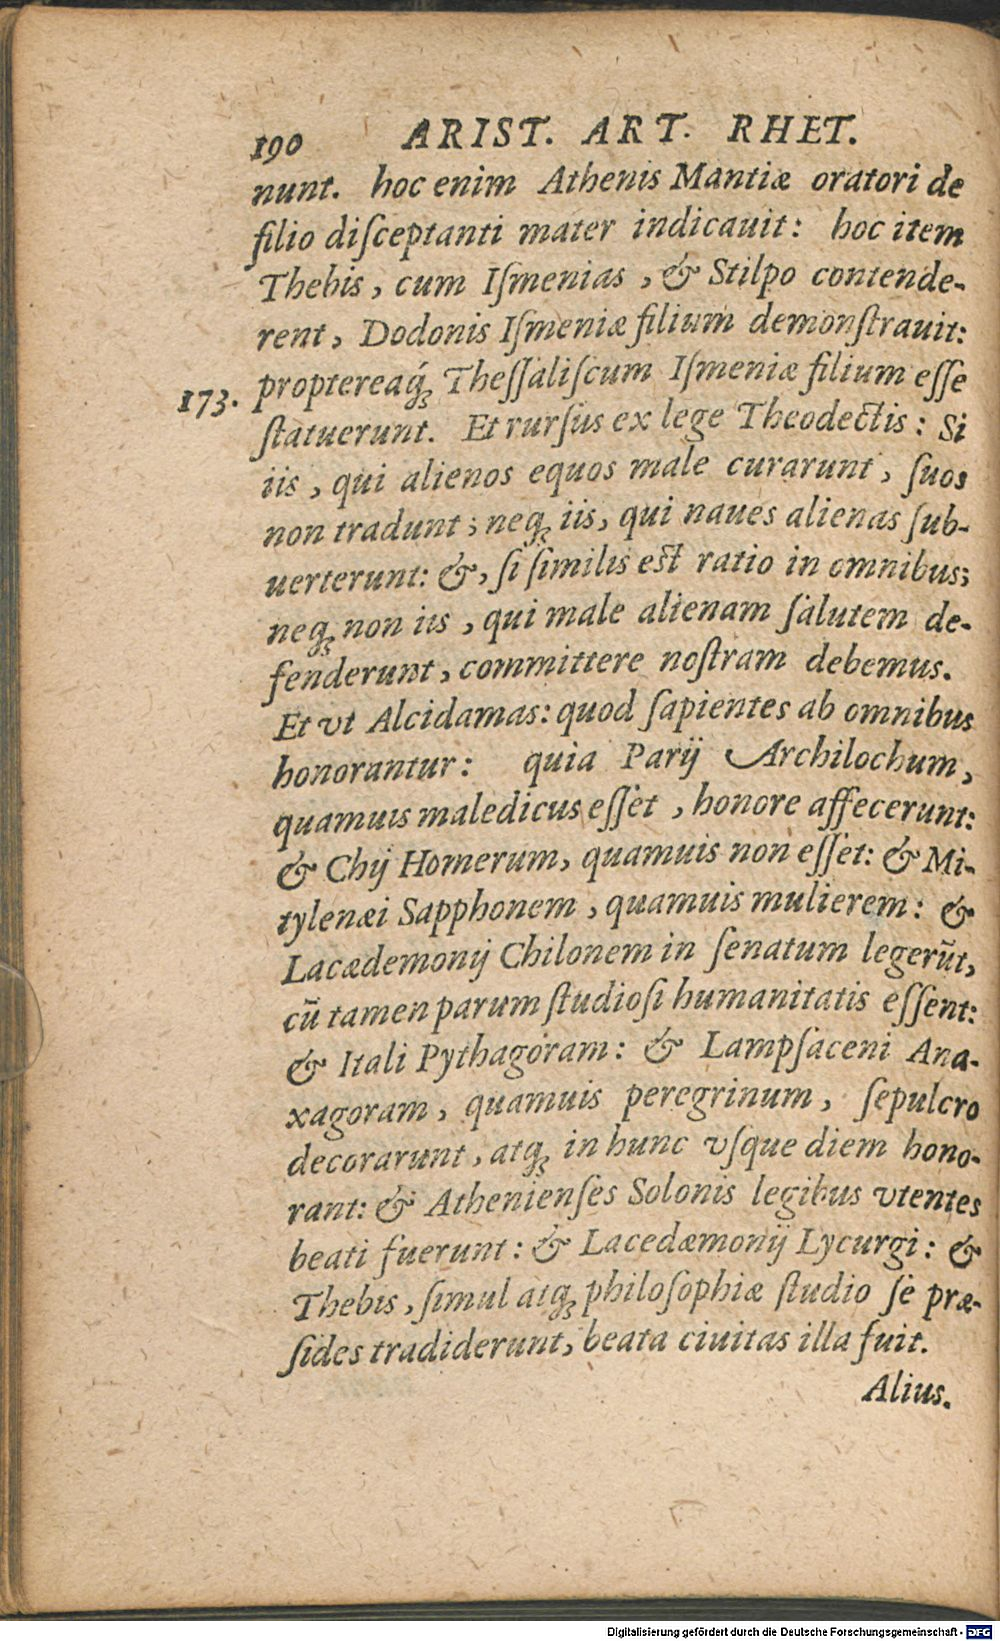 190 ARIST. ART. RHET.
nunt. hoc enim Athenis Mantiæ oratori de
filio diſceptanti mater indicauit: hoc item
Thebis, cum Iſmenias, & Stilpo contende-
rent, Dodonis Iſmeniæ filium demonſtrauit:
173. proptereáqꝫ Theſſaliſcum Iſmeniæ filium eſſe
ſtatuerunt. Et rurſus ex lege Theodectis: Si
iis, qui alienos equos male curarunt, ſuos
non tradunt; neqꝫ iis, qui naues alienas ſub-
uerterunt: &, ſi ſimilis est ratio in omnibus;
neqꝫ non iis, qui male alienam ſalutem de-
fenderunt, committere noſtram debemus.
Et vt Alcidamas: quod ſapientes ab omnibus
honorantur: quia Parij Archilochum,
quamuis maledicus eſſet, honore affecerunt:
& Chij Homerum, quamuis non eſſet: & Mi-
tylenæi Sapphonem, quamuis mulierem: &
Lacædemonij Chilonem in ſenatum legerūt,
cū tamen parum ſtudioſi humanitatis eſſent:
& Itali Pythagoram: & Lampſaceni Ana-
xagoram, quamuis peregrinum, ſepulcro
decorarunt, atqꝫ in hunc vſque diem hono-
rant: & Athenienſes Solonis legibus vtentes
beati fuerunt: & Lacedæmonij Lycurgi: &
Thebis, ſimul atqꝫ philoſophiæ ſtudio ſe præ-
ſides tradiderunt, beata ciuitas illa fuit.
Alius.
Digitalisierung gefördert durch die Deutsche Forschungsgemeinschaft - DFG